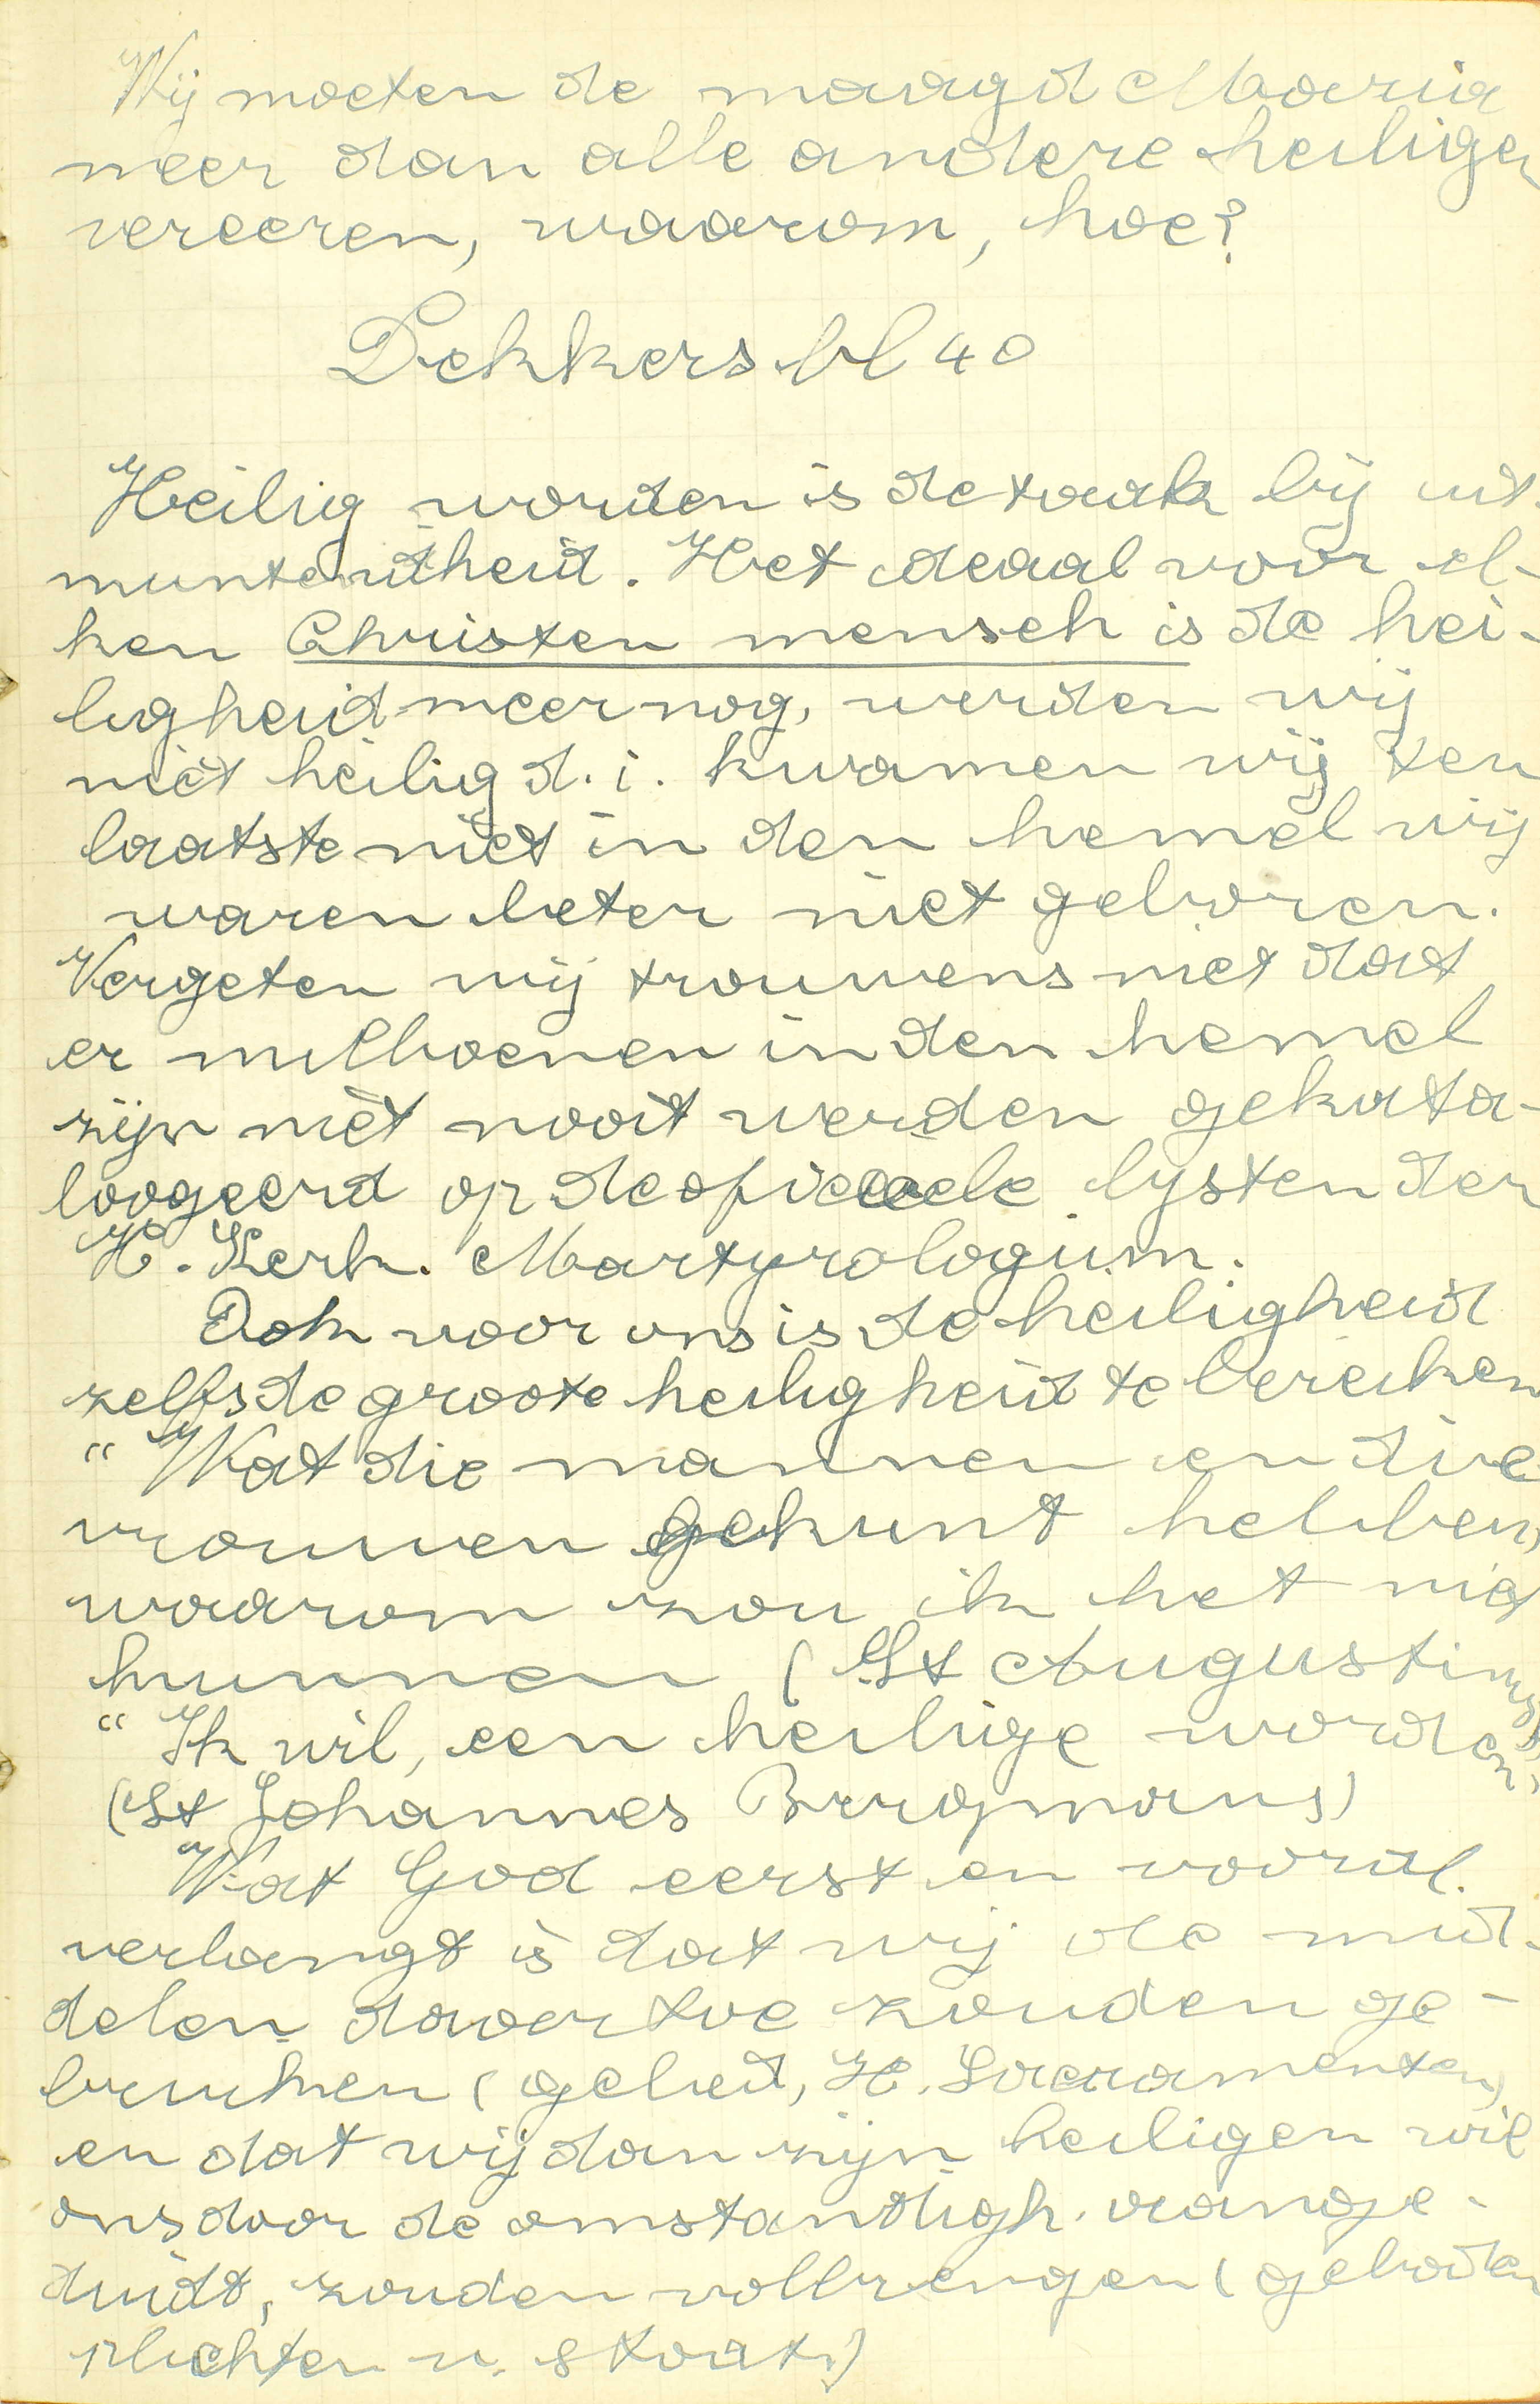 Wij moeten de maagd Maria
meer dan alle andere heiligen
vereeren, waarom, hoe?
Dekkers bl 40
Heilig worden is de taak bij uit-
muntendheid. Het ideaal voor el-
ken Christen mensch is de hei-
ligheid meer nog, werden wij
niet heilig d.i. kwamen wij ten
laatste niet in den hemel wij
waren beter niet geboren.
Vergeten wij trouwens niet dat
er millioenen in den hemel
zijn niet nooit werden gekata-
loogeerd op de oficieele lysten der
H. Kerk. Martyrologium.
Ook voor ons is de heiligheid
zelfs de groote heiligheid te bereiken
“ Wat die mannen en die
vrouwen gekunt hebben,
waarom zou ik het niet
kunnen (St Augustinus)
“ Ik wil, een heilige worden”
(St Johannes Bergmans)
Wat God eerst en vooral
verlangt is dat wij de mid-
delen daartoe zouden ge-
bruiken (gebed, H. Sacramenten)
en dat wij dan zijn heiligen wil
ons door de omstandigh. aange-
duidt, zouden volbrengen (geboden
plichten v. staat)